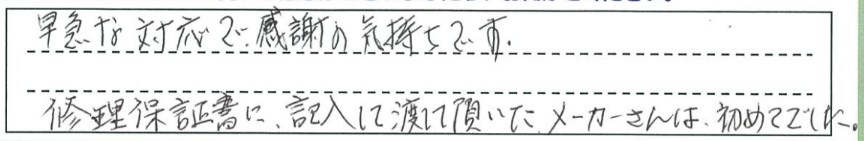 早急な対応で、感謝の気持ちです.
修理保証書に、記入して渡して頂いた メーカーさんは、初めてでした。